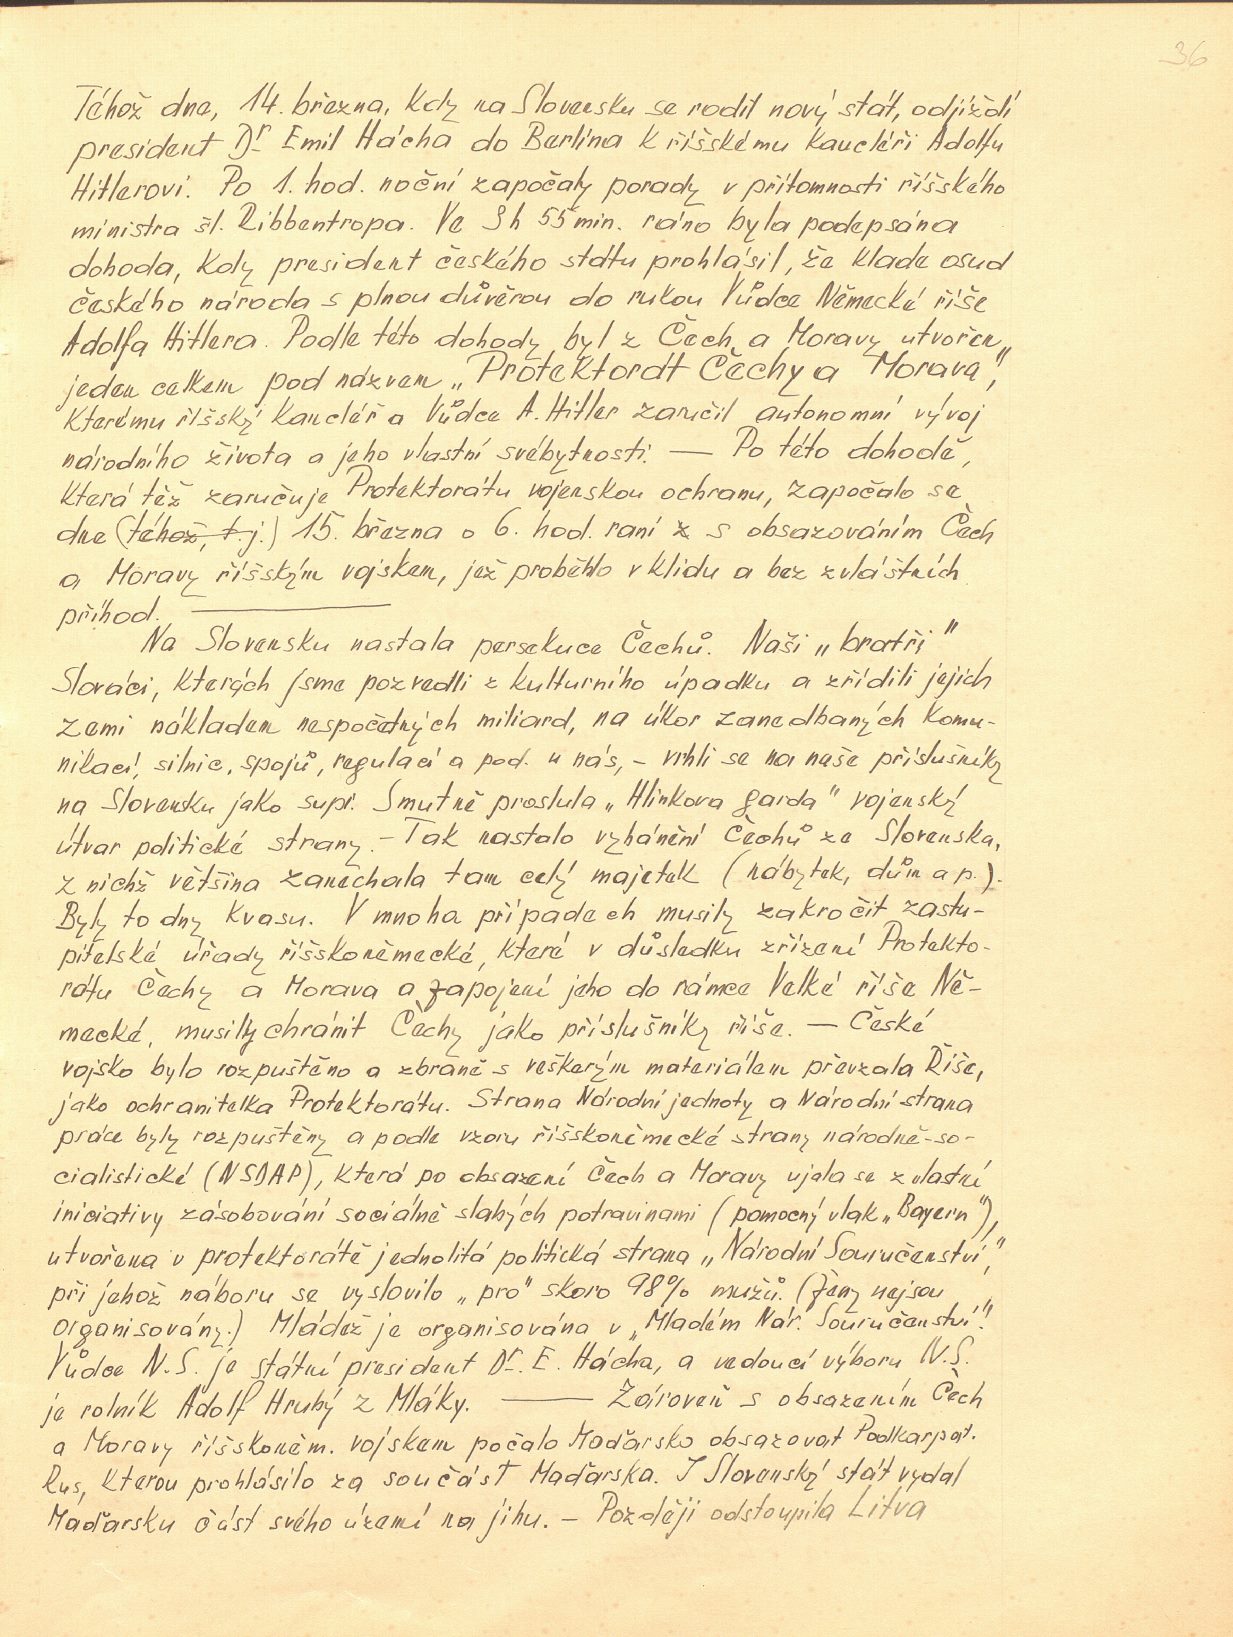 36
Téhož dne, 14. března, kdy na Slovensku se rodil nový stát, odjíždí
president Dr. Emil Hácha do Berlína k říšskému kancléři Adolfu
Hitlerovi. Po 1. hod. noční započaly porady v přítomnosti říšského
ministra šl. Ribbentropa. Ve 3 h 55 min. ráno byla podepsána
dohoda, kdy president českého státu prohlásil, že klade osud
českého národa s plnou důvěrou do rukou Vůdce Německé říše
Adolfa Hitlera. Podle této dohody byl z Čech a Moravy utvořen
jeden celkem pod názvem „Protektorát Čechy a Morava",
kterému říšský kancléř a Vůdce A. Hitler zaručil autonomní vývoj
národního života a jeho vlastní svébytnosti. — Po této dohodě,
která též zaručuje Protektorátu vojenskou ochranu, započalo se
dne (téhož, t.j.) 15. března o 6. hod. raní z s obsazováním Čech
a Moravy říšským vojskem, jež proběhlo v klidu a bez zvláštních
příhod. ———
Na Slovensku nastala persekuce Čechů. Naši „bratři"
Slováci, kterých jsme pozvedli z kulturního úpadku a zřídili jejich
zemi nákladem nespočetných miliard, na úkor zanedbaných komu-
nikací, silnic, spojů, regulací a pod. u nás, - vrhli se na naše příslušníky
na Slovensku jako supi. Smutně proslula „Hlinkova garda" vojenský
útvar politické strany. - Tak nastalo vyhánění Čechů ze Slovenska,
z nichž většina zanechala tam celý majetek (nábytek, dům a p.).
Byly to dny kvasu. V mnoha případech musily zakročit zastu-
pitelské úřady říšskoněmecké, které v důsledku zřízení Protekto-
rátu Čechy a Morava a zapojení jeho do rámce Velké říše Ně-
mecké, musily chránit Čechy jako příslušníky říše. — České
vojsko bylo rozpuštěno a zbraně s veškerým materiálem převzala Říše,
jako ochranitelka Protektorátu. Strana Národní jednoty a Národní strana
práce byly rozpuštěny a podle vzoru říšskoněmecké strany národně-so-
cialistické (NSDAP), která po obsazení Čech a Moravy ujala se z vlastní
iniciativy zásobování sociálně slabých potravinami (pomocný vlak „Bayern"),
utvořena v protektorátě jednolitá politická strana „Národní Souručenství",
při jehož náboru se vyslovilo „pro" skoro 98% mužů. (Ženy nejsou
organisovány.) Mládež je organisována v „Mladém Nár. Souručenství".
Vůdce N.S. je státní president Dr. E. Hácha, a vedoucí výboru N.S.
je rolník Adolf Hrubý z Mláky. ——— Zároveň s obsazením Čech
a Moravy říšskoněm. vojskem počalo Maďarsko obsazovat Podkarpat.
Rus, kterou prohlásilo za součást Maďarska. I Slovenský stát vydal
Maďarsku část svého území na jihu. - Později odstoupila Litva